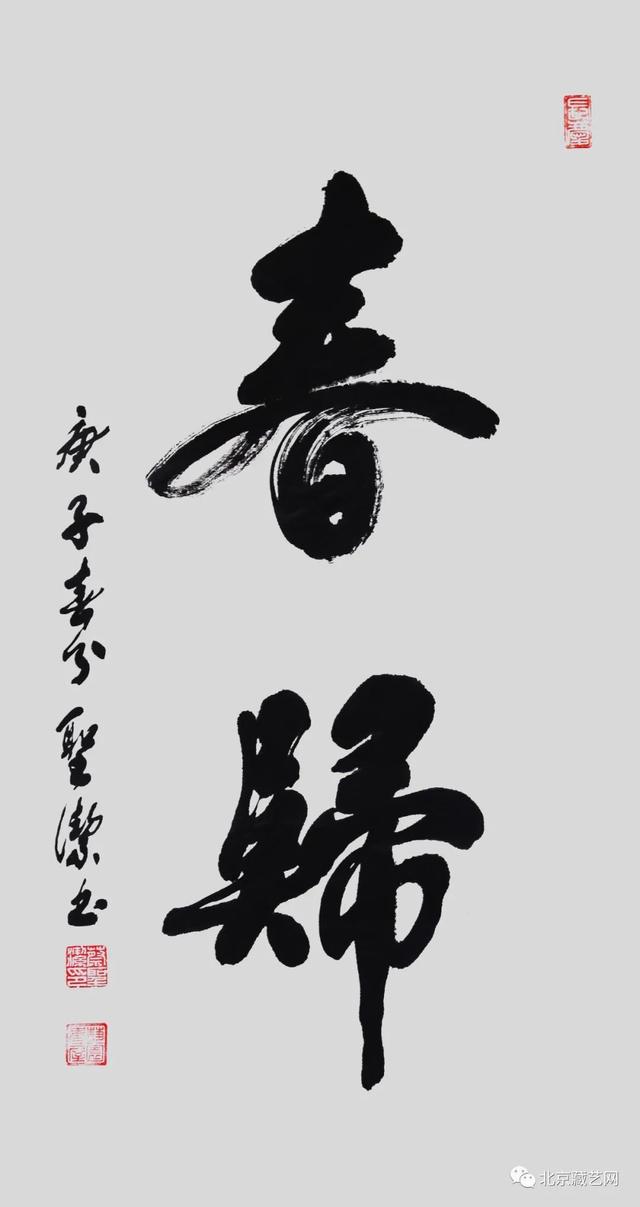 春歸
庚子春分聖潔书
北京藏艺网